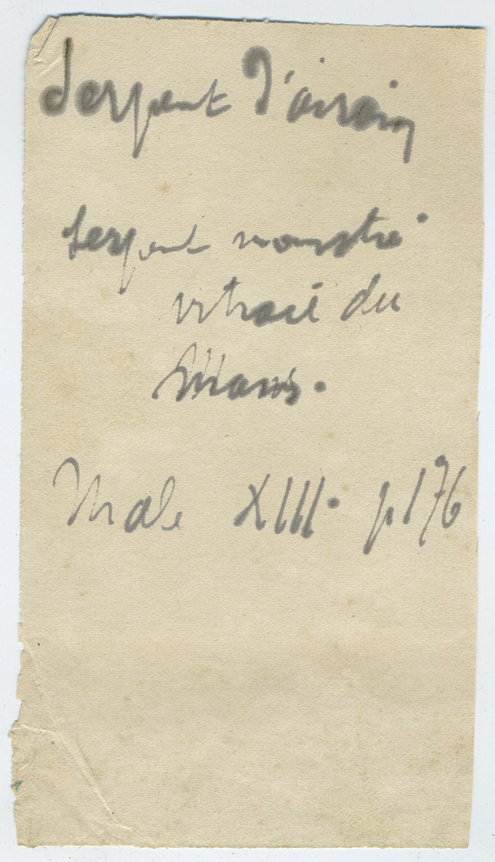 Serpent d'airain
Serpent monstre
vitrail du
Mans.
Male XIIIe p176